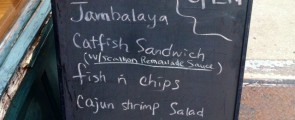 OPEN
Jambalaya
Catfish Sandwich
(w/ Remoulade Sauce)
fish n chips
Cajun shrimp Salad